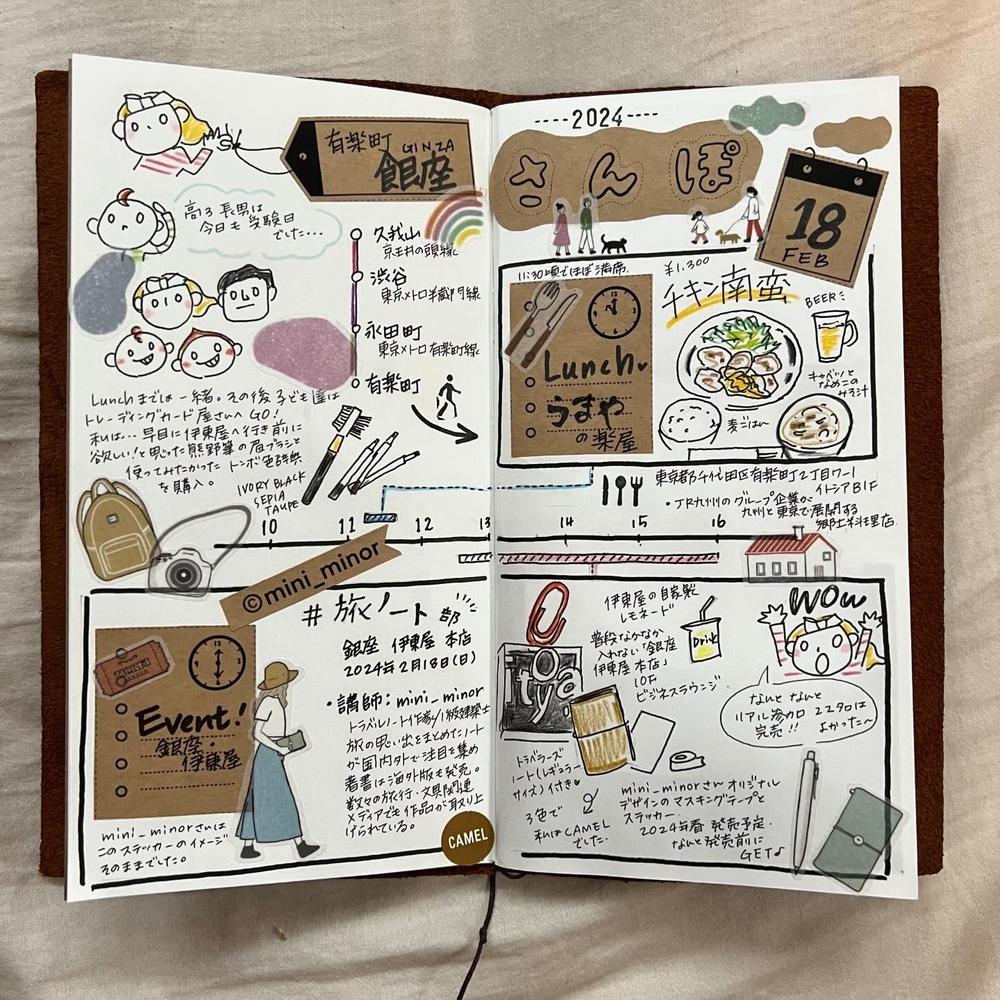 有楽町 GINZA
銀座
高3 長男は
今日も 受験日
でした...
久我山
京王井の頭線
渋谷
東京メトロ半蔵門線
永田町
東京メトロ有楽町線
有楽町
Lunchまでは 一緒。その後 子ども達は
トレーディングカード屋さんへ GO!
私は... 早目に伊東屋へ行き前に
欲しい!と思った熊野筆の眉ブラシと
使ってみたかった トンボ色辞典
を購入。
IVORY BLACK
SEPIA
TAUPE
10 11 12 13 14 15 16
©mini_minor
# 旅ノート部
銀座 伊東屋 本店
2024年2月18日(日)
Event!
銀座・
伊東屋
・講師：mini_minor
トラベルノート作家/1級建築士
旅の思い出をまとめたノート
が国内外で注目を集め
著書は海外版も発売。
数々の旅行・文具関連
メディアでも作品が取り上
げられている。
mini_minorさんは
このステッカーのイメージ
そのままでした。
CAMEL
2024
さんぽ
18
FEB
11:30頃でほぼ満席
¥1,300
チキン南蛮
BEER
Lunch
うまや
の楽屋
キャベツと
なめこの
みそ汁
麦ごはん
東京都千代田区有楽町2丁目7-1
イトシアB1F
・JR九州のグループ企業が
九州と東京で展開する
郷土料理店
伊東屋の自家製
レモネード
Drink
普段なかなか
入れない「銀座
伊東屋 本店」
10F
ビジネスラウンジ
WOW
なんと なんと
リアル参加 22名は
完売!!
よかった〜
Ito
ya
トラベラーズ
ノート(レギュラー
サイズ)付き
3色で
私はCAMEL
でした
mini_minorさん オリジナル
デザインのマスキングテープと
ステッカー
2024年春 発売予定
なんと発売前に
GET♪